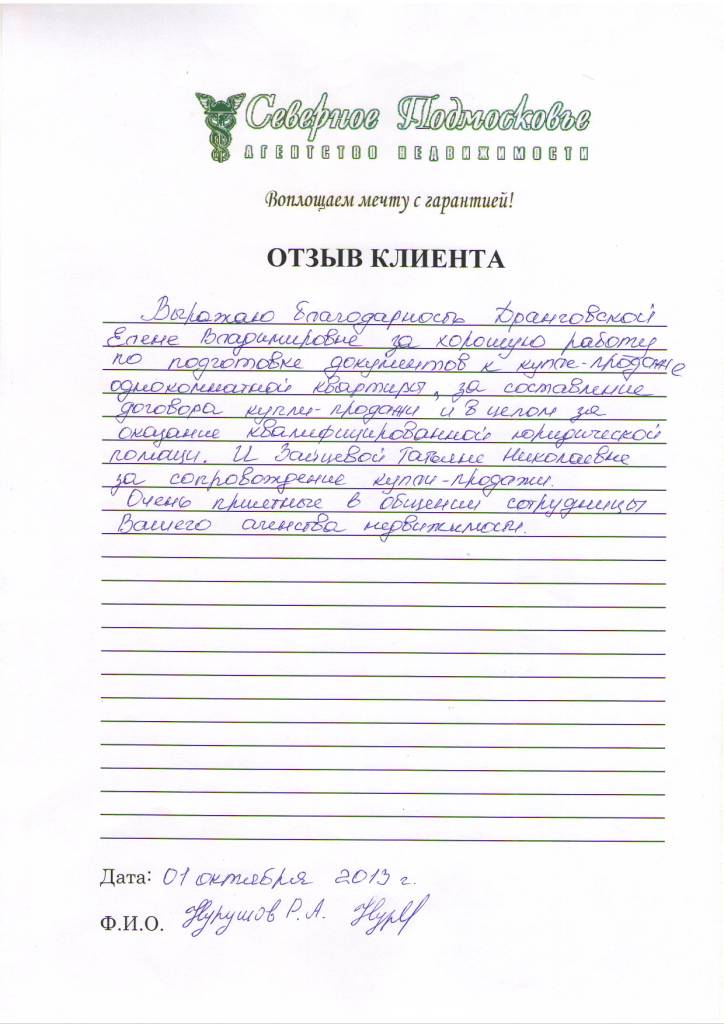 Северное Подмосковье
АГЕНТСТВО НЕДВИЖИМОСТИ
Воплощаем мечту с гарантией!
ОТЗЫВ КЛИЕНТА
Выражаю благодарность Дранговской
Елене Владимировне за хорошую работу
по подготовке документов к купле-продаже
однокомнатной квартиры, за составление
договора купли-продажи и в целом за
оказание квалифицированной юридической
помощи. И Зайцевой Татьяне Николаевне
за сопровождение купли-продажи.
Очень приятные в общении сотрудницы
Вашего агенства недвижимости.
Дата: 01 октября 2013 г.
Ф.И.О. Нурушов Р.А.